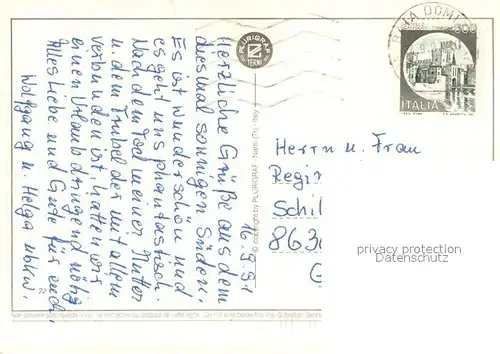 16.9.91
Herzliche Grüße aus dem
diesmal sonnigen Süden.
Es ist wunderschön und
es geht uns phantastisch.
Nach dem Tod meiner Mutter
u. dem Trubel der mit allem
verbunden ist, hatten wir
einen Urlaub dringend nötig
Alles Liebe und Gute für euch
Wolfgang u. Helga
72
PLURIGRAF
TERNI
© copyright by PLURIGRAF - Narni (TR) - Italy
IA DOMI
ITALIA
Herrn u. Frau
Regi
Schil
863
privacy protection
Datenschutz